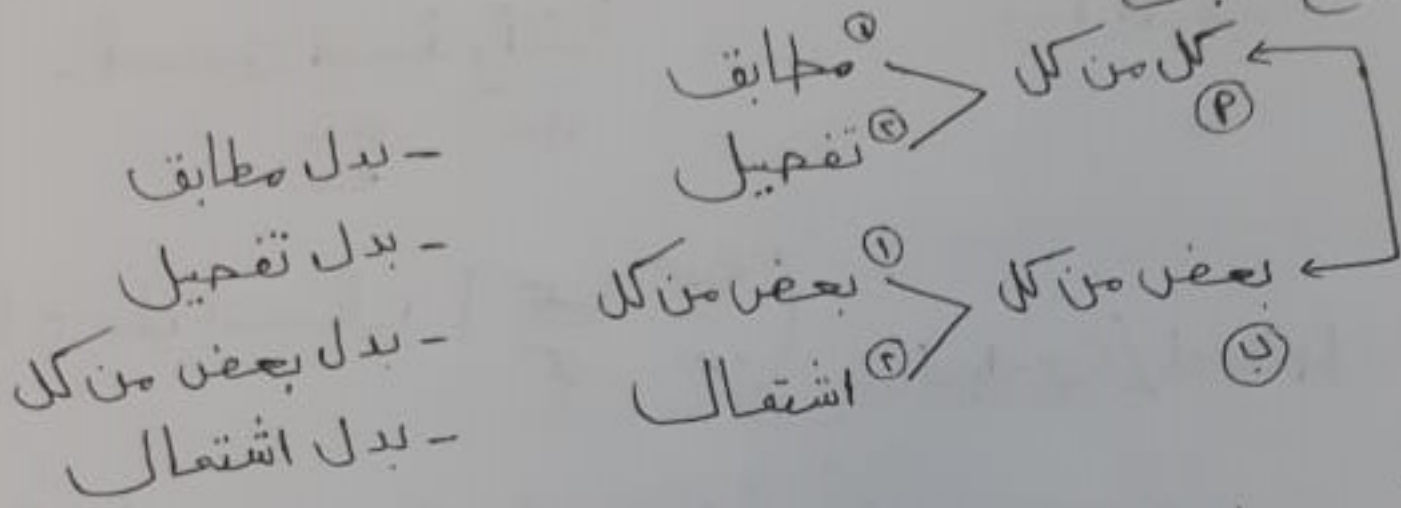 كل من كل
أ
١ مطابق
٢ تفصيل
بعض من كل
ب
١ بعض من كل
٢ اشتمال
- بدل مطابق
- بدل تفصيل
- بدل بعض من كل
- بدل اشتمال